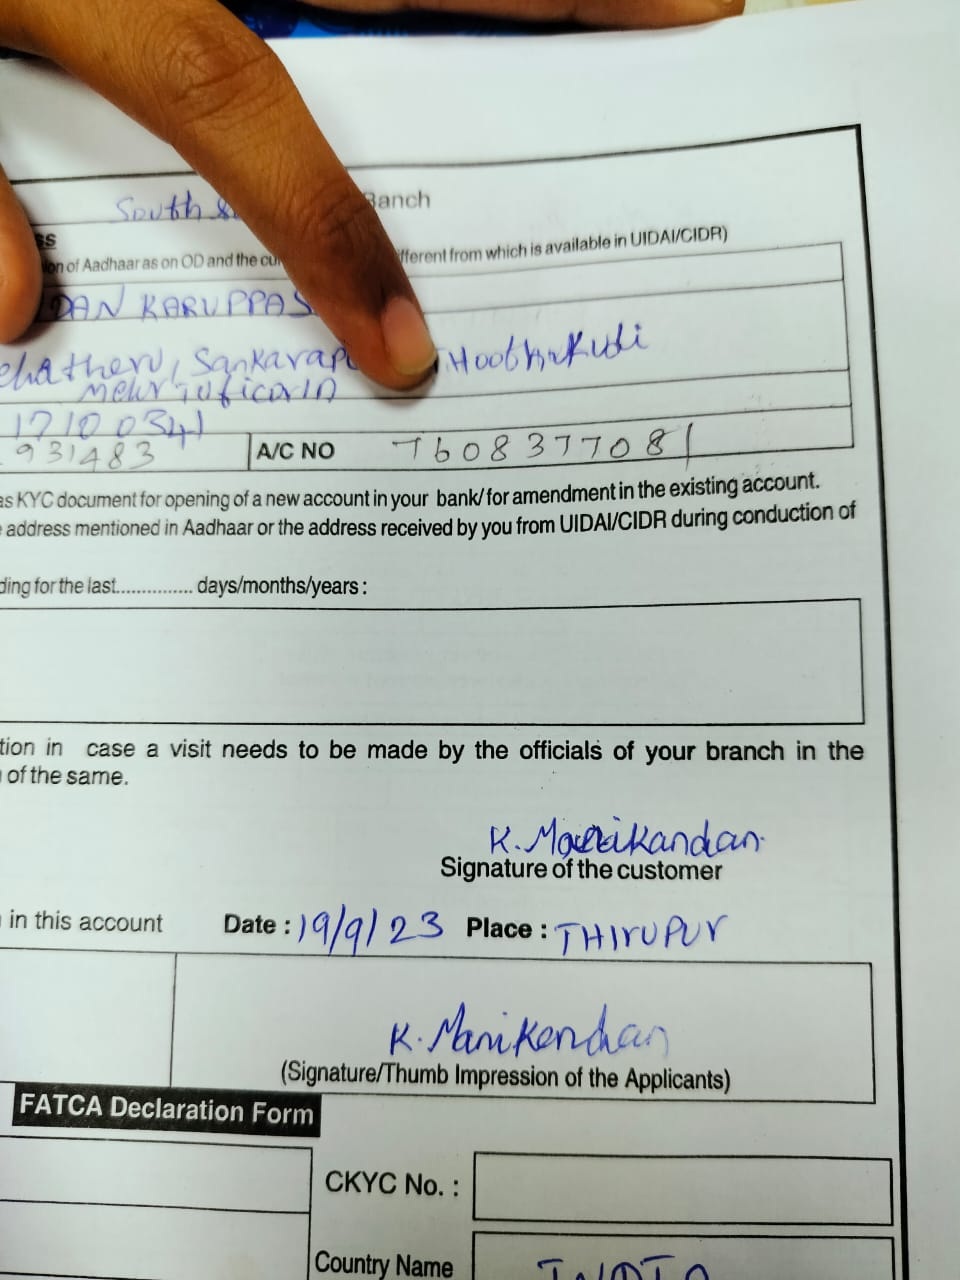 South Branch
ss
ion of Aadhaar as on OD and the cu fferent from which is available in UIDAI/CIDR)
DAN KARUPPAS
Sankarap
171000341
931483 A/C NO 7608377081
as KYC document for opening of a new account in your bank/ for amendment in the existing account.
address mentioned in Aadhaar or the address received by you from UIDAI/CIDR during conduction of
ding for the last.............. days/months/years :
tion in case a visit needs to be made by the officials of your branch in the
of the same.
K. Manikandan
Signature of the customer
in this account Date : 19/9/23 Place : THIrUPUr
K. Manikandan
(Signature/Thumb Impression of the Applicants)
FATCA Declaration Form
CKYC No. :
Country Name INDIA